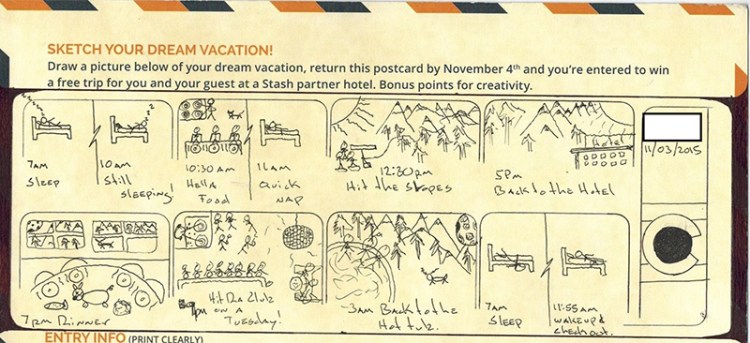 SKETCH YOUR DREAM VACATION!
Draw a picture below of your dream vacation, return this postcard by November 4th and you're entered to win
a free trip for you and your guest at a Stash partner hotel. Bonus points for creativity.
7am
Sleep
10am
Still
sleeping!
10:30am
Hella
Food
11am
Quick
nap
12:30pm
Hit the slopes
hotel
5pm
Back to the Hotel
11/03/2015
7pm Dinner
9pm
Hit Da Clubz
on a
Tuesday!
3am Back to the
Hot tub.
7am
Sleep
11:55am
wake up &
check out.
ENTRY INFO (PRINT CLEARLY)